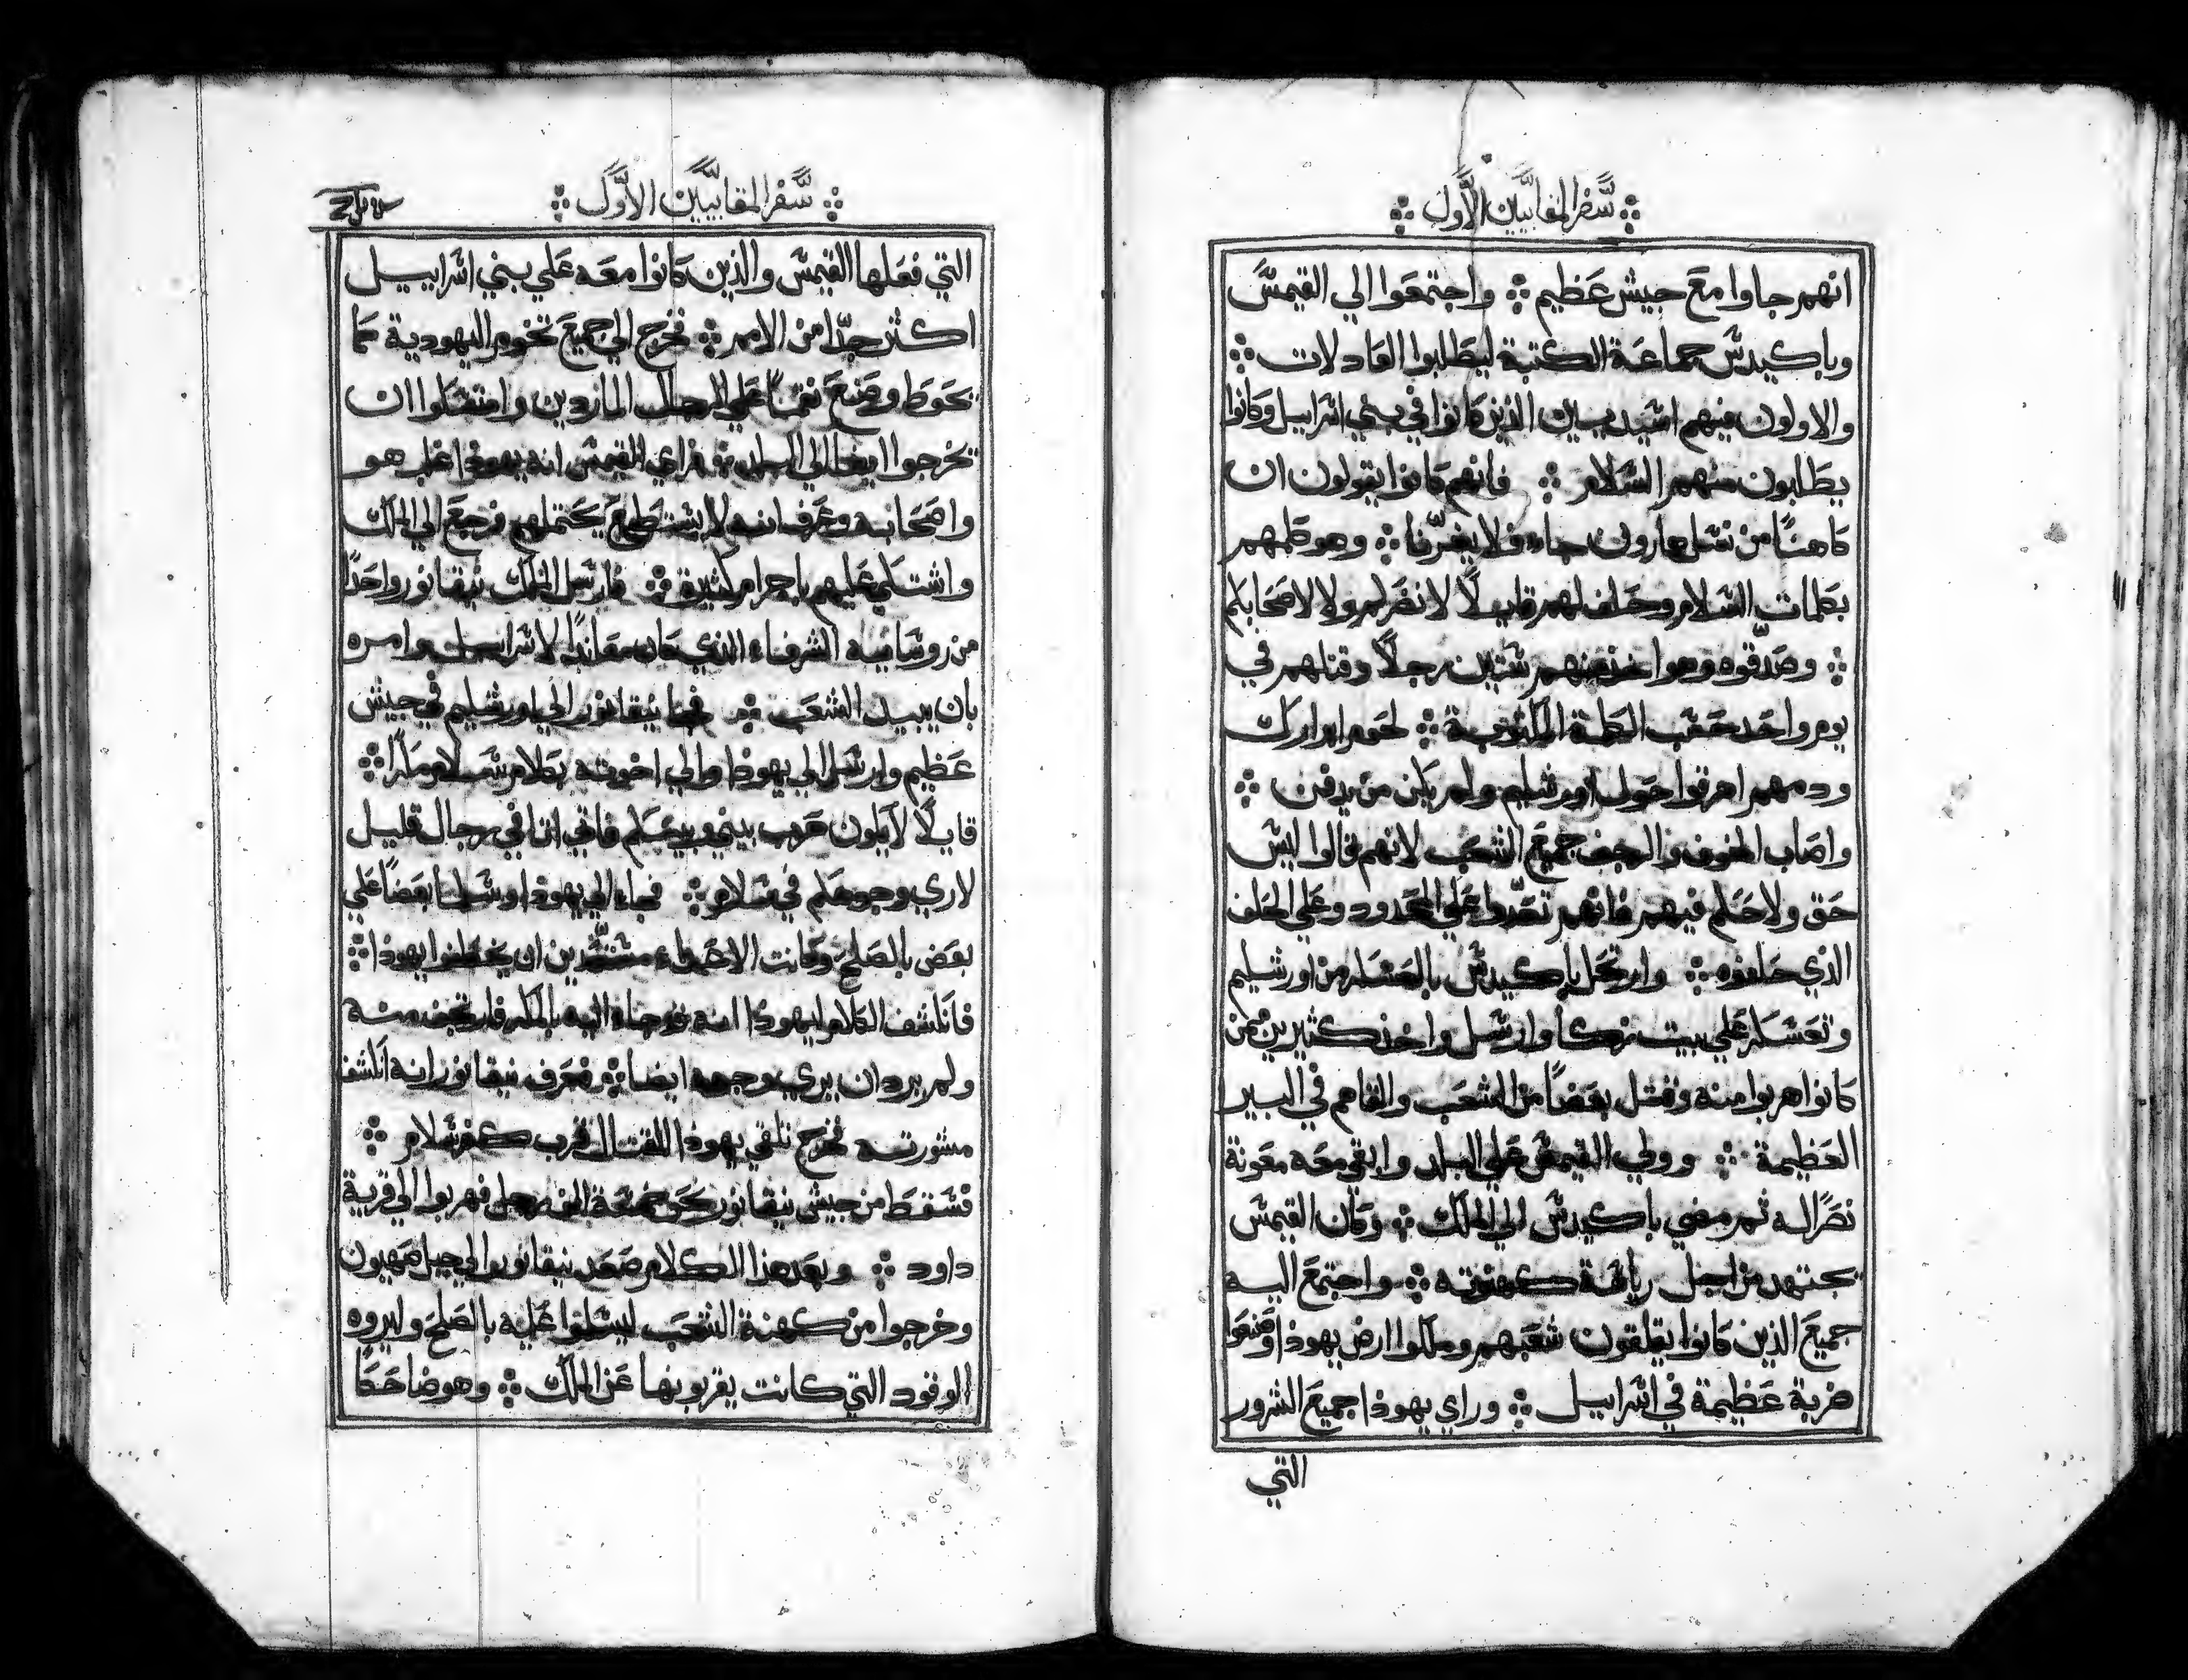 سفر المقابيين الاول
انهم جاوا مع جيش عظيم واجتمعوا الي القيمس
وباكيدس جماعة الكتبة ليطلبوا العادلات
والاولون منهم الذين كانوا في بني اسراييل وكانوا
يطلبون منهم السلام فانهم كانوا يقولون ان
كاهنًا من نسل هارون جاء فلا يغرّنا وهو كلمهم
بكلمات السلام وحلف لهم قايلًا لا نضركم ولا لاصحابكم
وصدّقوه وهو اخذ منهم ستين رجلًا وقتلهم في
يوم واحد حسب الكلمة المكتوبة لحوم ابرارك
ودمهم اهرقوا حول اورشليم ولم يكن من يدفن
واصاب الخوف والرجف جميع الشعب لانهم قالوا ليس
حق ولا حكم فيهم فانهم تعدّوا علي الحدود وعلي الحلف
الذي حلفوه وارتحل باكيدس بالعسكر من اورشليم
وتعسكر علي بيت زكا وارسل واخذ كثيرين ممن
كانوا هربوا منه وقتل بعضًا من الشعب والقاهم في البير
العظيمة وولي القيمس علي البلد وابقي معه معونة
نصرًا له ثم مضي باكيدس الي الملك وكان القيمس
يجتهد من اجل رياسة كهنوته واجتمع اليه
جميع الذين كانوا يقلقون شعبهم وملكوا ارض يهوذا وصنعوا
ضربة عظيمة في اسراييل وراي يهوذا جميع الشرور
التي
سفر المقابيين الاول
التي فعلها القيمس والذين كانوا معه علي بني اسراييل
اكثر جدًّا من الامم فخرج الي جميع تخوم اليهودية كما
يحوط وصنع نقمًا علي الرجال الماردين وامتنعوا ان
يخرجوا ايضا الي البلد فراي القيمس انه يهوذا غلب هو
واصحابه وعرف انه لا يستطيع يحتملهم فرجع الي الملك
واشتكي عليهم باجرام كثيرة فارسل الملك نيقانور واحدًا
من روسايه الشرفاء الذي كان معاندًا لاسراييل وامره
بان يبيد الشعب فجا نيقانور الي اورشليم في جيش
عظيم وارسل الي يهوذا والي اخوته بكلام سلام مكرًا
قايلًا لا يكون حرب بيني وبينكم فاني اتا في رجال قليل
لاري وجوهكم في سلام فجاء الي يهوذا وسلما بعضًا علي
بعض بالصلح وكانت الاعداء مستعدين ان يخطفوا يهوذا
فانكشف الكلام ليهوذا انه جاء اليه بالمكر فارتجف منه
ولم يرد ان يري وجهه ايضا فعرف نيقانور انه انكشف
مشورته فخرج تلقي يهوذا للقتال قرب كفرسلام
فسقط من جيش نيقانور نحو خمسة الف رجل فهربوا الي قرية
داود وبعد هذا الكلام صعد نيقانور الي جبل صهيون
وخرجوا من كهنة الشعب ليسلموا عليه بالصلح وليروه
الوقود التي كانت يقربونها عن الملك وهو ضاحكًا